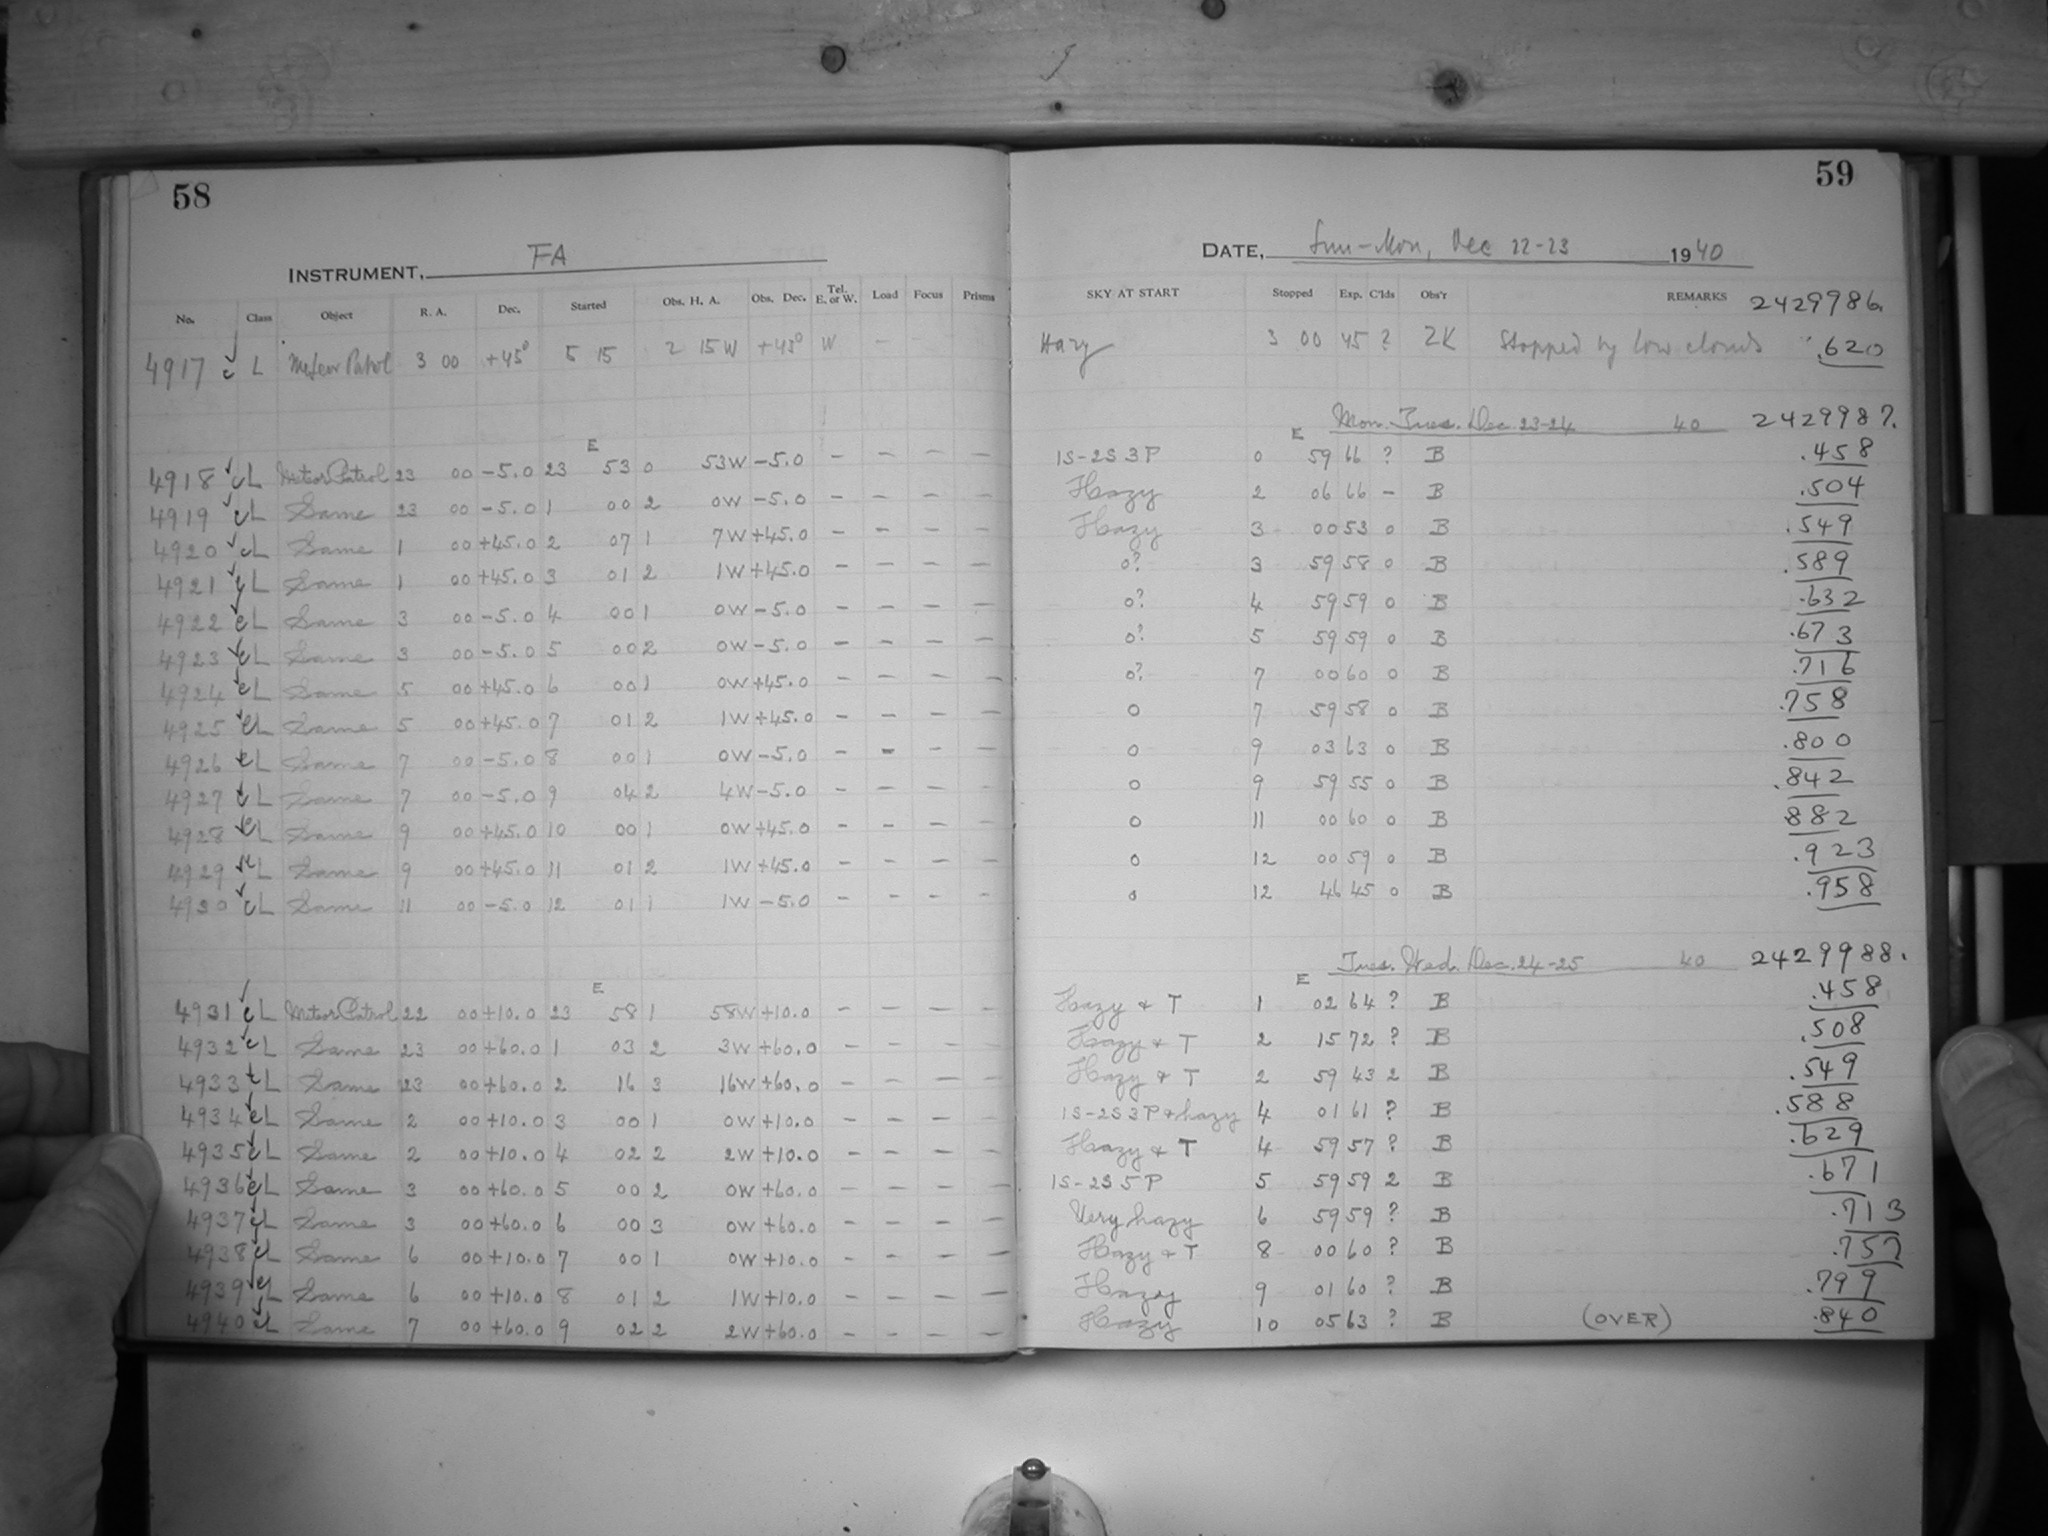 58
INSTRUMENT, FA
No. Class Object R. A. Dec. Started Obs. H. A. Obs. Dec. Tel. E. or W. Load Focus Prisms
4917 c L Meteor Patrol 3 00 +45° 5 15 2 15W +45° W — —
E
4918 c L Meteor Patrol 23 00 -5.0 23 53 0 53W -5.0 — — — —
4919 c L Same 23 00 -5.0 1 00 2 0W -5.0 — — — —
4920 c L Same 1 00 +45.0 2 07 1 7W +45.0 — — — —
4921 c L Same 1 00 +45.0 3 01 2 1W +45.0 — — — —
4922 c L Same 3 00 -5.0 4 00 1 0W -5.0 — — — —
4923 c L Same 3 00 -5.0 5 00 2 0W -5.0 — — — —
4924 c L Same 5 00 +45.0 6 00 1 0W +45.0 — — — —
4925 c L Same 5 00 +45.0 7 01 2 1W +45.0 — — — —
4926 c L Same 7 00 -5.0 8 00 1 0W -5.0 — — — —
4927 c L Same 7 00 -5.0 9 04 2 4W -5.0 — — — —
4928 c L Same 9 00 +45.0 10 00 1 0W +45.0 — — — —
4929 c L Same 9 00 +45.0 11 01 2 1W +45.0 — — — —
4930 c L Same 11 00 -5.0 12 01 1 1W -5.0 — — — —
E
4931 c L Meteor Patrol 22 00 +10.0 23 58 1 58W +10.0 — — — —
4932 c L Same 23 00 +60.0 1 03 2 3W +60.0 — — — —
4933 c L Same 23 00 +60.0 2 16 3 16W +60.0 — — — —
4934 c L Same 2 00 +10.0 3 00 1 0W +10.0 — — — —
4935 c L Same 2 00 +10.0 4 02 2 2W +10.0 — — — —
4936 c L Same 3 00 +60.0 5 00 2 0W +60.0 — — — —
4937 c L Same 3 00 +60.0 6 00 3 0W +60.0 — — — —
4938 c L Same 6 00 +10.0 7 00 1 0W +10.0 — — — —
4939 c L Same 6 00 +10.0 8 01 2 1W +10.0 — — — —
4940 c L Same 7 00 +60.0 9 02 2 2W +60.0 — — — —
59
DATE, Sun-Mon, Dec 22-23 1940
SKY AT START Stopped Exp. C'lds Obs'r REMARKS 2429986.
Hazy 3 00 45 ? ZK Stopped by low clouds .620
Mon. Tues. Dec. 23-24 40 2429987.
E
1S-2S 3P 0 59 66 ? B .458
Hazy 2 06 66 — B .504
Hazy 3 00 53 0 B .549
0? 3 59 58 0 B .589
0? 4 59 59 0 B .632
0? 5 59 59 0 B .673
0? 7 00 60 0 B .716
0 7 59 58 0 B .758
0 9 03 63 0 B .800
0 9 59 55 0 B .842
0 11 00 60 0 B 882
0 12 00 59 0 B .923
0 12 46 45 0 B .958
Tues. Wed. Dec. 24-25 40 2429988.
E
Hazy + T 1 02 64 ? B .458
Hazy + T 2 15 72 ? B .508
Hazy + T 2 59 43 2 B .549
1S-2S 3P + hazy 4 01 61 ? B .588
Hazy + T 4 59 57 ? B .629
1S-2S 5P 5 59 59 2 B .671
Very hazy 6 59 59 ? B .713
Hazy + T 8 00 60 ? B .757
Hazy 9 01 60 ? B .799
Hazy 10 05 63 ? B (OVER) .840